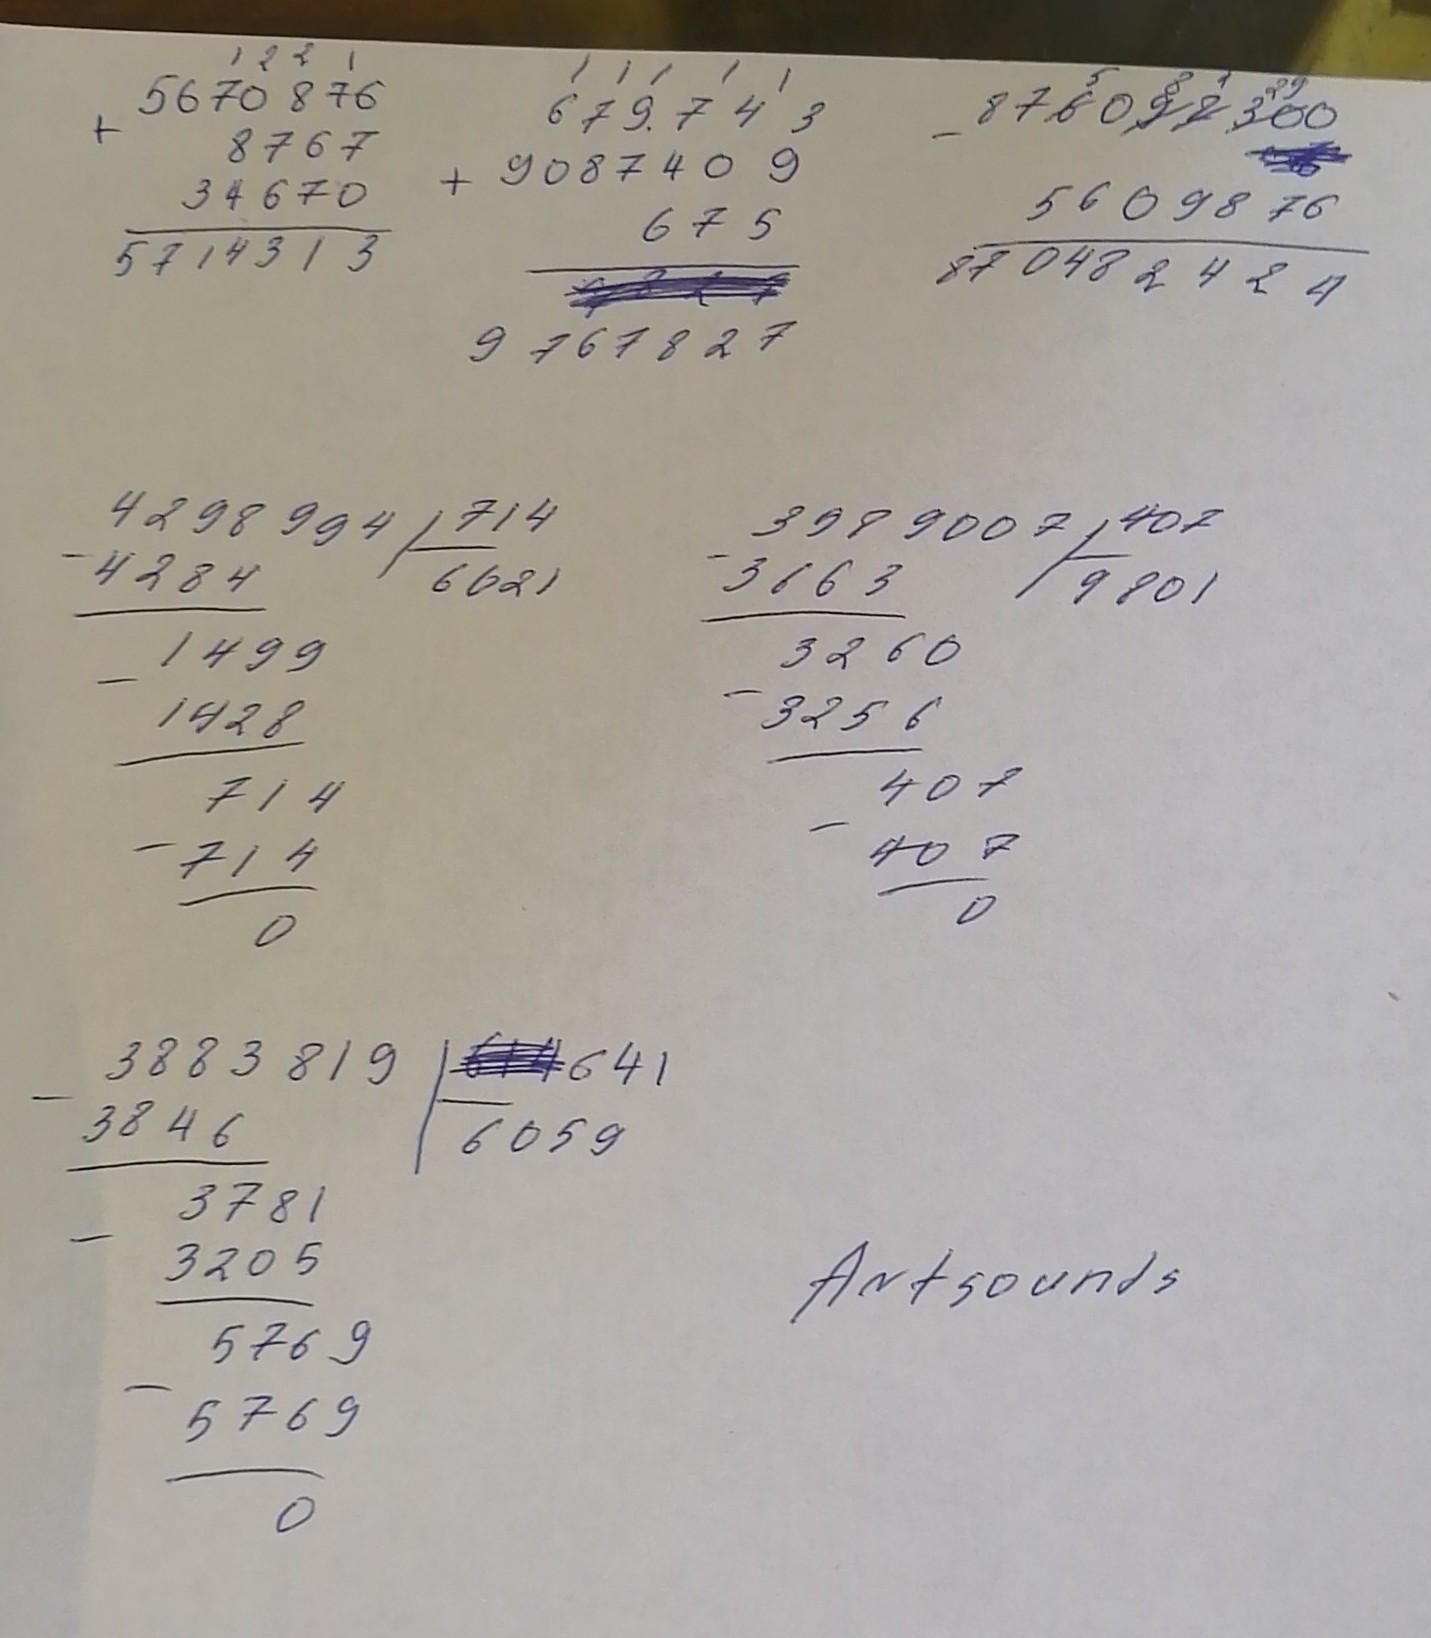 1 2 2 1
5670876
+
8767
34670
5714313
1 1 1 1 1
679.743
+ 9087409
675
9767827
5 8 1 29
- 876092300
5609876
870482424
4298994 714
- 4284 6021
1499
-
1428
714
- 714
0
3989007 407
- 3663 9801
3260
- 3256
407
-
407
0
3883819 641
-
3846 6059
3781
-
3205
5769
-
5769
0
Artsounds